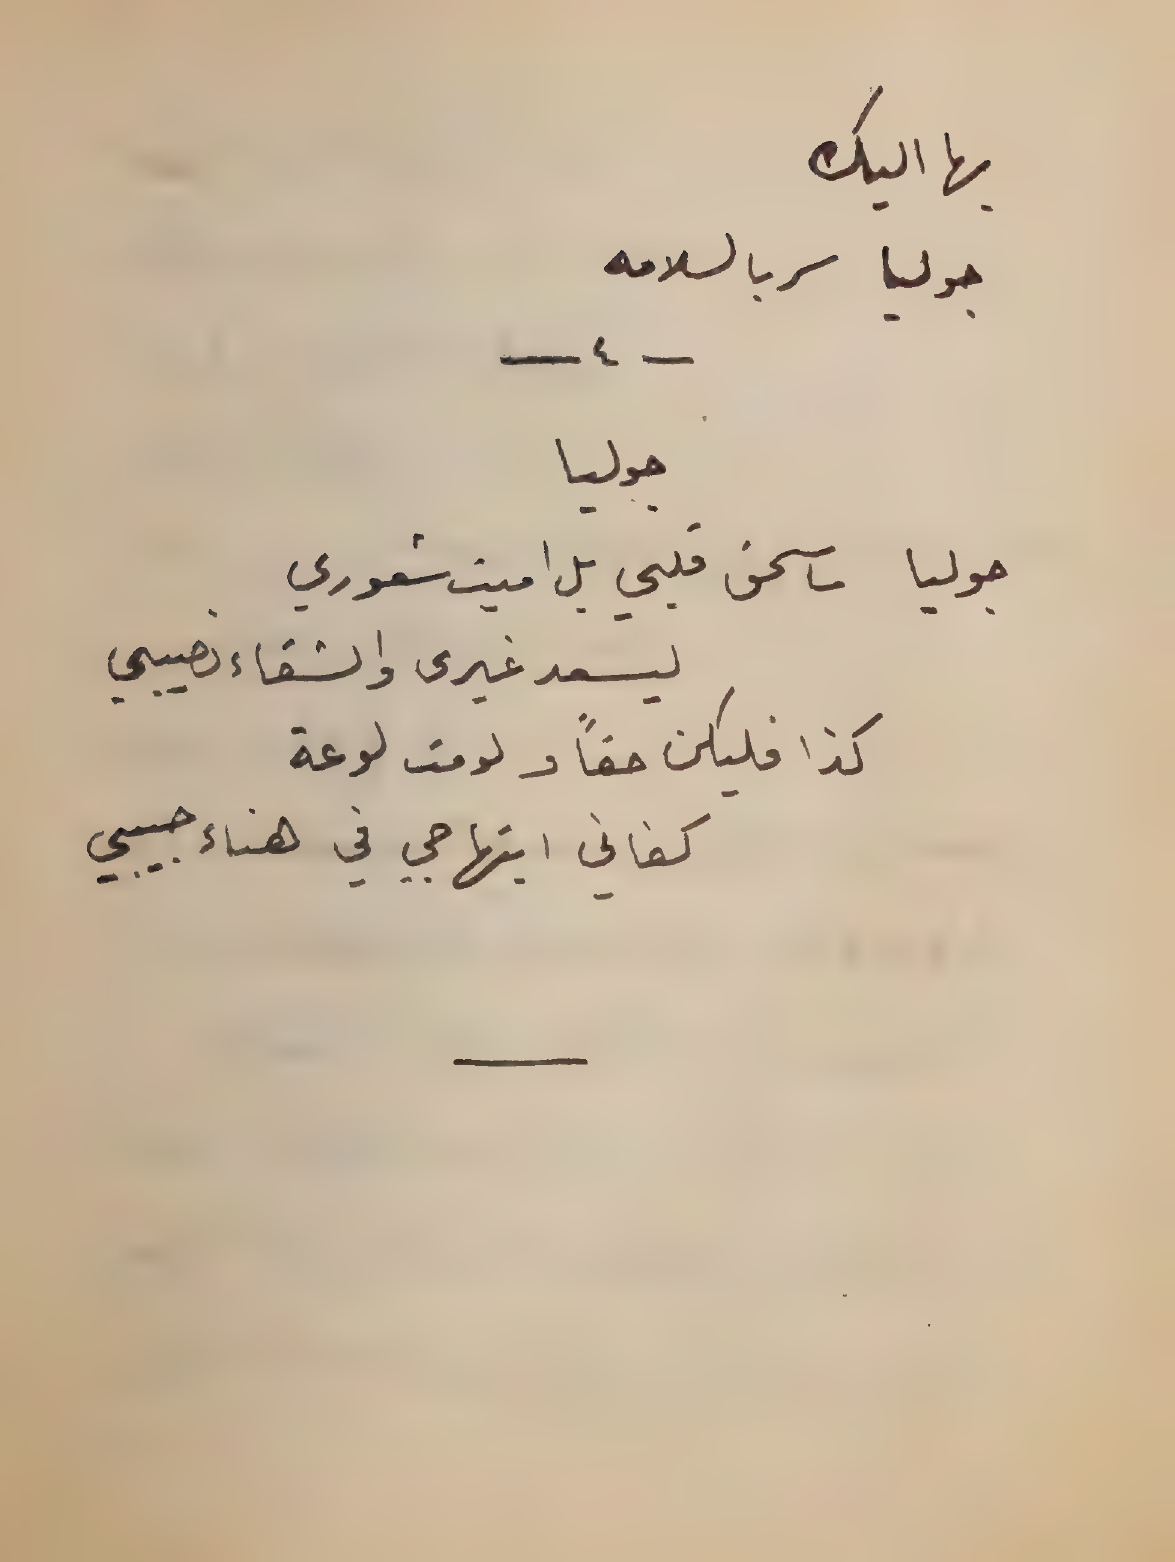 بها اليك
جوليا سر بالسلامه
— ٤ —
جوليا
جوليا سأسحق قلبي بل اميت شعوري
ليسعد غيرى والشقاء نصيبي
كذا فليكن حقاً ولو مت لوعة
كفاني ابتهاجي في هناء حبيبي